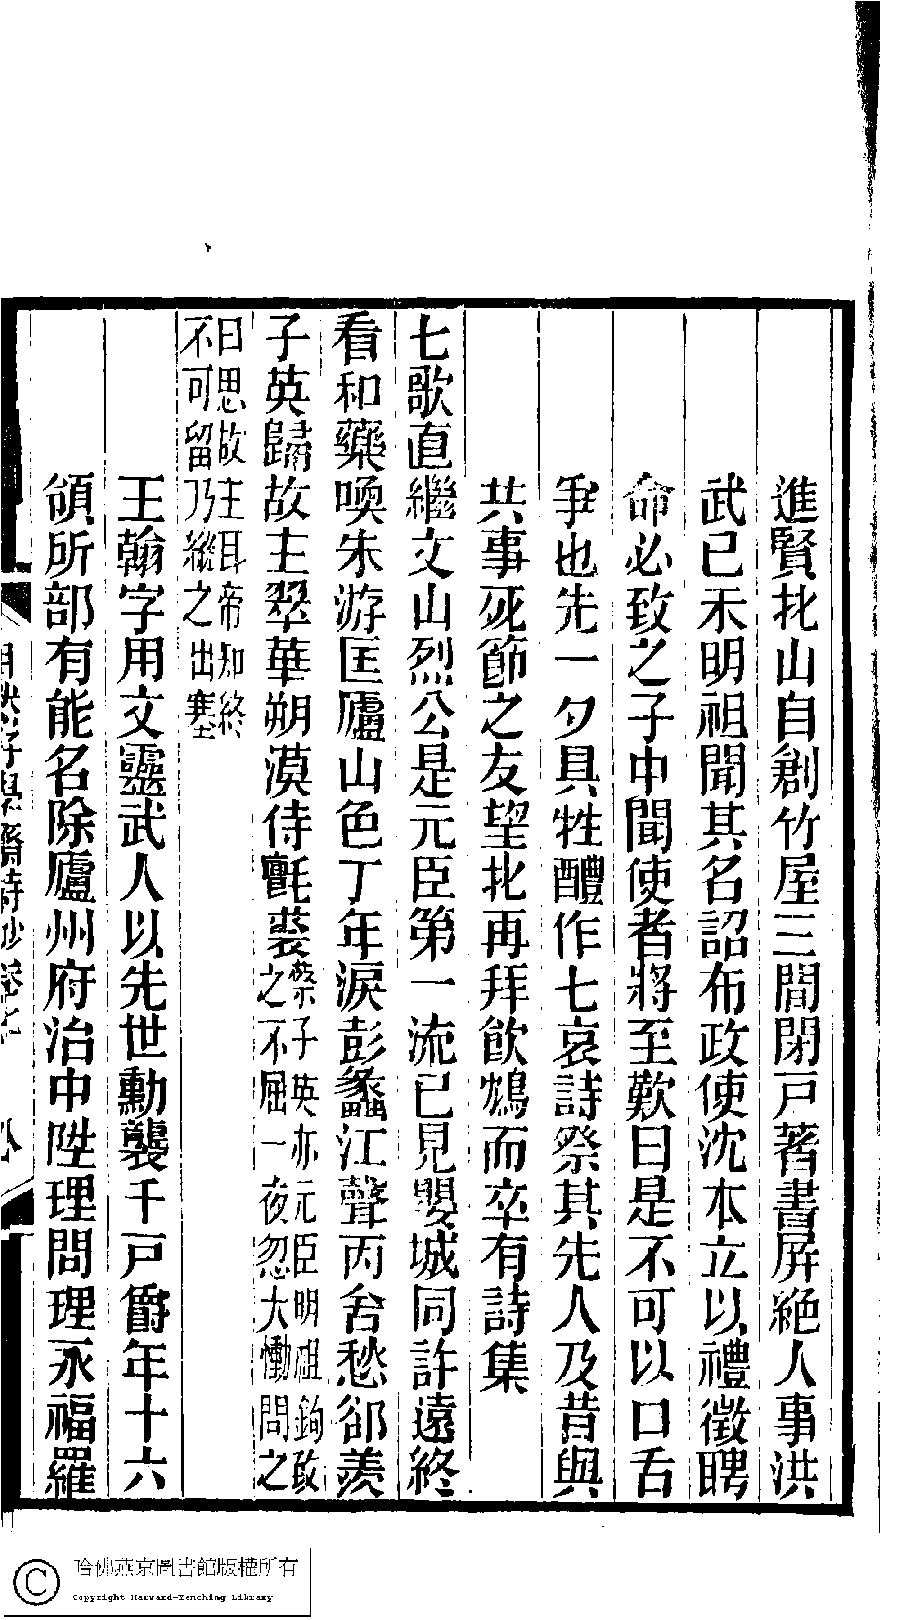 進賢北山自剏竹屋三間閉戸著書屏絶人事洪
武已未明祖聞其名詔布政使沈本立以禮徵聘
命必致之子中聞使者將至歎曰是不可以口舌
爭也先一夕具牲醴作七哀詩祭其先人及昔與
共事死節之友望北再拜飮鴆而卒有詩集
七歌直繼文山烈公是元臣第一流已見嬰城同許遠終
看和藥喚朱游匡廬山色丁年淚彭蠡江聲丙舍愁郤羨
子英歸故主翠華朔漠侍氊裘蔡子英亦元臣明祖鉤致
之不屈一夜忽大慟問之
曰思故主耳帝知終
不可留乃縱之出塞
王翰字用文靈武人以先世勳襲千戸爵年十六
領所部有能名除廬州府治中陞理問理永福羅
哈佛燕京圖書館版權所有
Copyright Harvard-Yenching Library